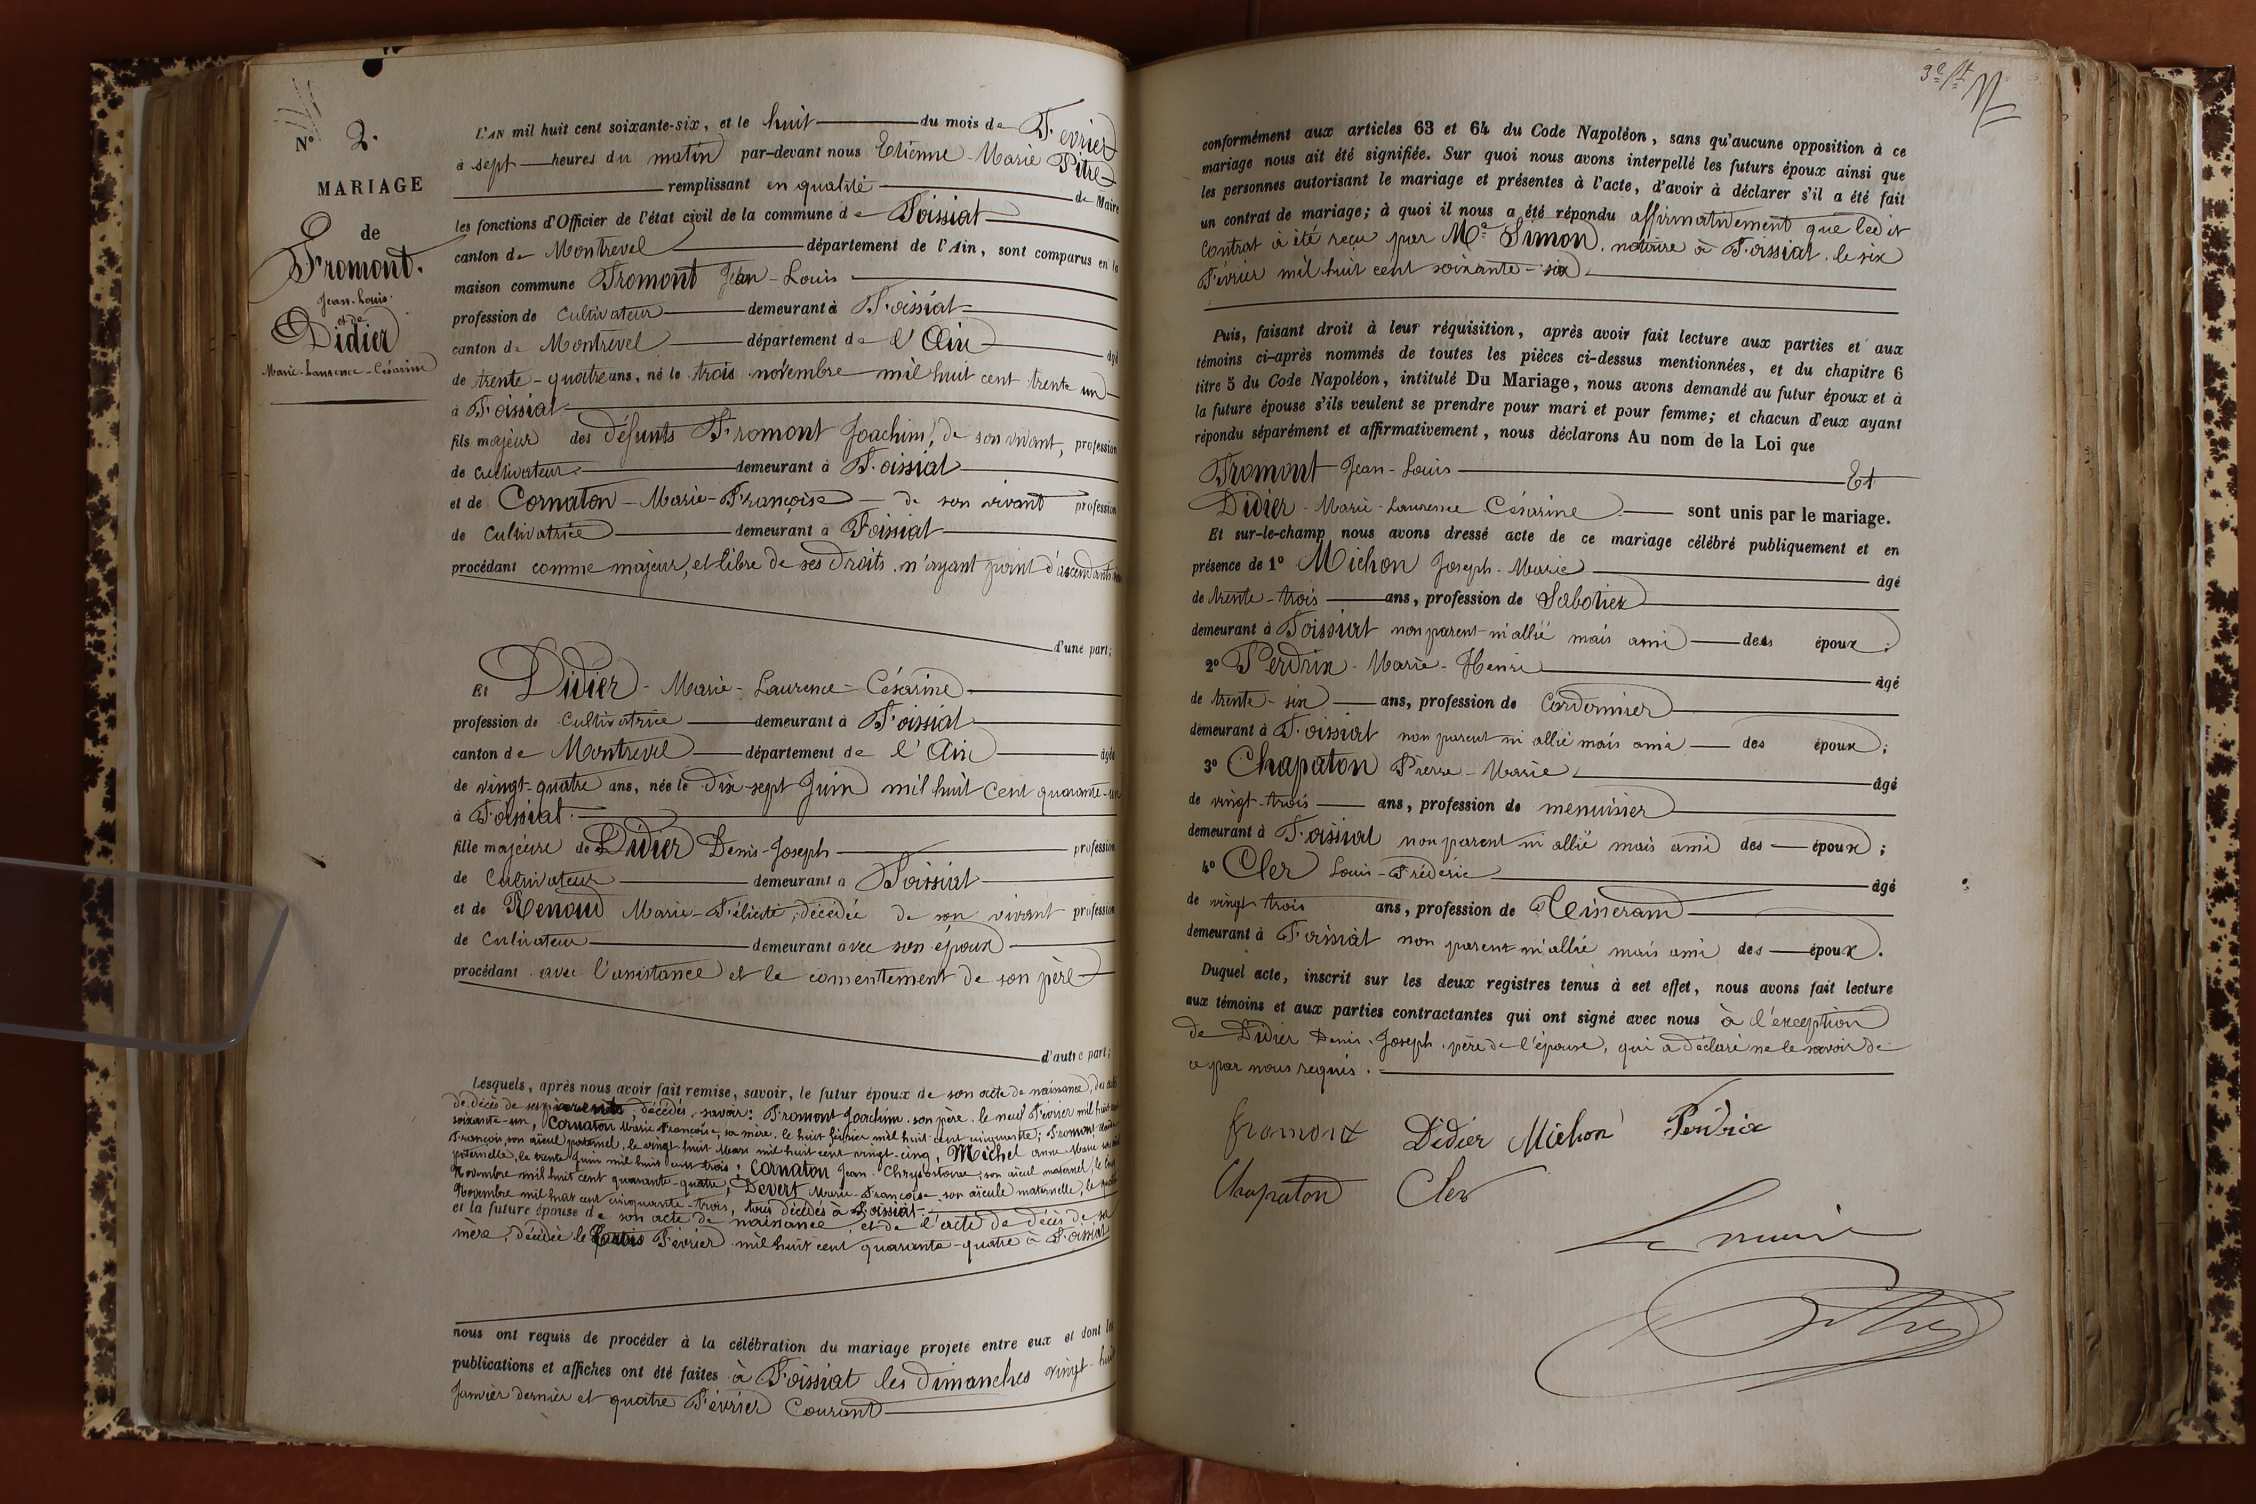 N° 2.
MARIAGE
de
Fromont.
Jean-Louis.
et de
Didier
Marie-Laurence-Césarine
L'AN mil huit cent soixante-six, et le huit du mois de Février
à sept heures du matin par-devant nous Etienne-Marie Pitre
remplissant en qualité de Maire
les fonctions d'Officier de l'état civil de la commune de Foissiat
canton de Montrevel département de l'Ain, sont comparus en la
maison commune Fromont Jean-Louis
profession de Cultivateur demeurant à Foissiat
canton de Montrevel département de l'Ain âgé
de trente-quatre ans, né le trois novembre mil huit cent trente un
à Foissiat
fils majeur des défunts Fromont Joachim, de son vivant, profession
de Cultivateur demeurant à Foissiat
et de Cornaton-Marie-Françoise de son vivant profession
de Cultivatrice demeurant à Foissiat
procédant comme majeur, et libre de ses droits n'ayant point d'ascendants
d'une part;
Et Didier-Marie-Laurence-Césarine
profession de Cultivatrice demeurant à Foissiat
canton de Montrevel département de l'Ain âgée
de vingt-quatre ans, née le dix-sept Juin mil huit cent quarante-un
à Foissiat.
fille majeure de Didier Denis-Joseph profession
de Cultivateur demeurant à Foissiat
et de Renoud Marie-Félicité, décédée de son vivant profession
de Cultivateur demeurant avec son époux
procédant avec l'assistance et le consentement de son père
d'autre part;
Lesquels, après nous avoir fait remise, savoir, le futur époux de son acte de naissance, des actes
de décès de ses parents, décédés, savoir: Fromont Joachim, son père, le neuf Février mil huit cent
soixante-un, Cornaton Marie Françoise, sa mère, le huit février mil huit cent cinquante; Fromont
François, son aïeul paternel, le vingt huit Mars mil huit cent vingt-cinq, Michel Anne Marie
paternelle, le trente Juin mil huit cent trois, Cornaton Jean-Chrysostome, son aïeul maternel, le
Novembre mil huit cent quarante-quatre, Devert Marie-Françoise, son aïeule maternelle, le
Novembre mil huit cent cinquante-trois, tous décédés à Foissiat.
et la future épouse de son acte de naissance et de l'acte de décès de sa
mère, décédée le Février mil huit cent quarante-quatre à Foissiat
nous ont requis de procéder à la célébration du mariage projeté entre eux et dont les
publications et affiches ont été faites à Foissiat les dimanches vingt-huit
Janvier dernier et quatre Février Courant
conformément aux articles 63 et 64 du Code Napoléon, sans qu'aucune opposition à ce
mariage nous ait été signifiée. Sur quoi nous avons interpellé les futurs époux ainsi que
les personnes autorisant le mariage et présentes à l'acte, d'avoir à déclarer s'il a été fait
un contrat de mariage; à quoi il nous a été répondu affirmativement que ledit
Contrat à été reçu par Me Simon, notaire à Foissiat, le six
Février mil huit cent soixante-six.
Puis, faisant droit à leur réquisition, après avoir fait lecture aux parties et aux
témoins ci-après nommés de toutes les pièces ci-dessus mentionnées, et du chapitre 6
titre 5 du Code Napoléon, intitulé Du Mariage, nous avons demandé au futur époux et à
la future épouse s'ils veulent se prendre pour mari et pour femme; et chacun d'eux ayant
répondu séparément et affirmativement, nous déclarons Au nom de la Loi que
Fromont Jean-Louis Et
Didier-Marie-Laurence Césarine sont unis par le mariage.
Et sur-le-champ nous avons dressé acte de ce mariage célébré publiquement et en
présence de 1° Michon Joseph-Marie âgé
de trente-trois ans, profession de Sabotier
demeurant à Foissiat non parent ni allié mais ami des époux;
2° Perdrix-Marie-Henri âgé
de trente-six ans, profession de Cordonnier
demeurant à Foissiat non parent ni allié mais ami des époux;
3° Chapaton Pierre-Marie âgé
de vingt-trois ans, profession de menuisier
demeurant à Foissiat non parent ni allié mais ami des époux;
4° Cler Louis-Frédéric âgé
de vingt trois ans, profession de Tisserand
demeurant à Foissiat non parent ni allié mais ami des époux.
Duquel acte, inscrit sur les deux registres tenus à cet effet, nous avons fait lecture
aux témoins et aux parties contractantes qui ont signé avec nous à l'exception
de Didier Denis-Joseph, père de l'épouse, qui a déclaré ne le savoir de
ce par nous requis.
fromont Didier Michon Perdrix
Chapaton Cler
Le maire
Pitre